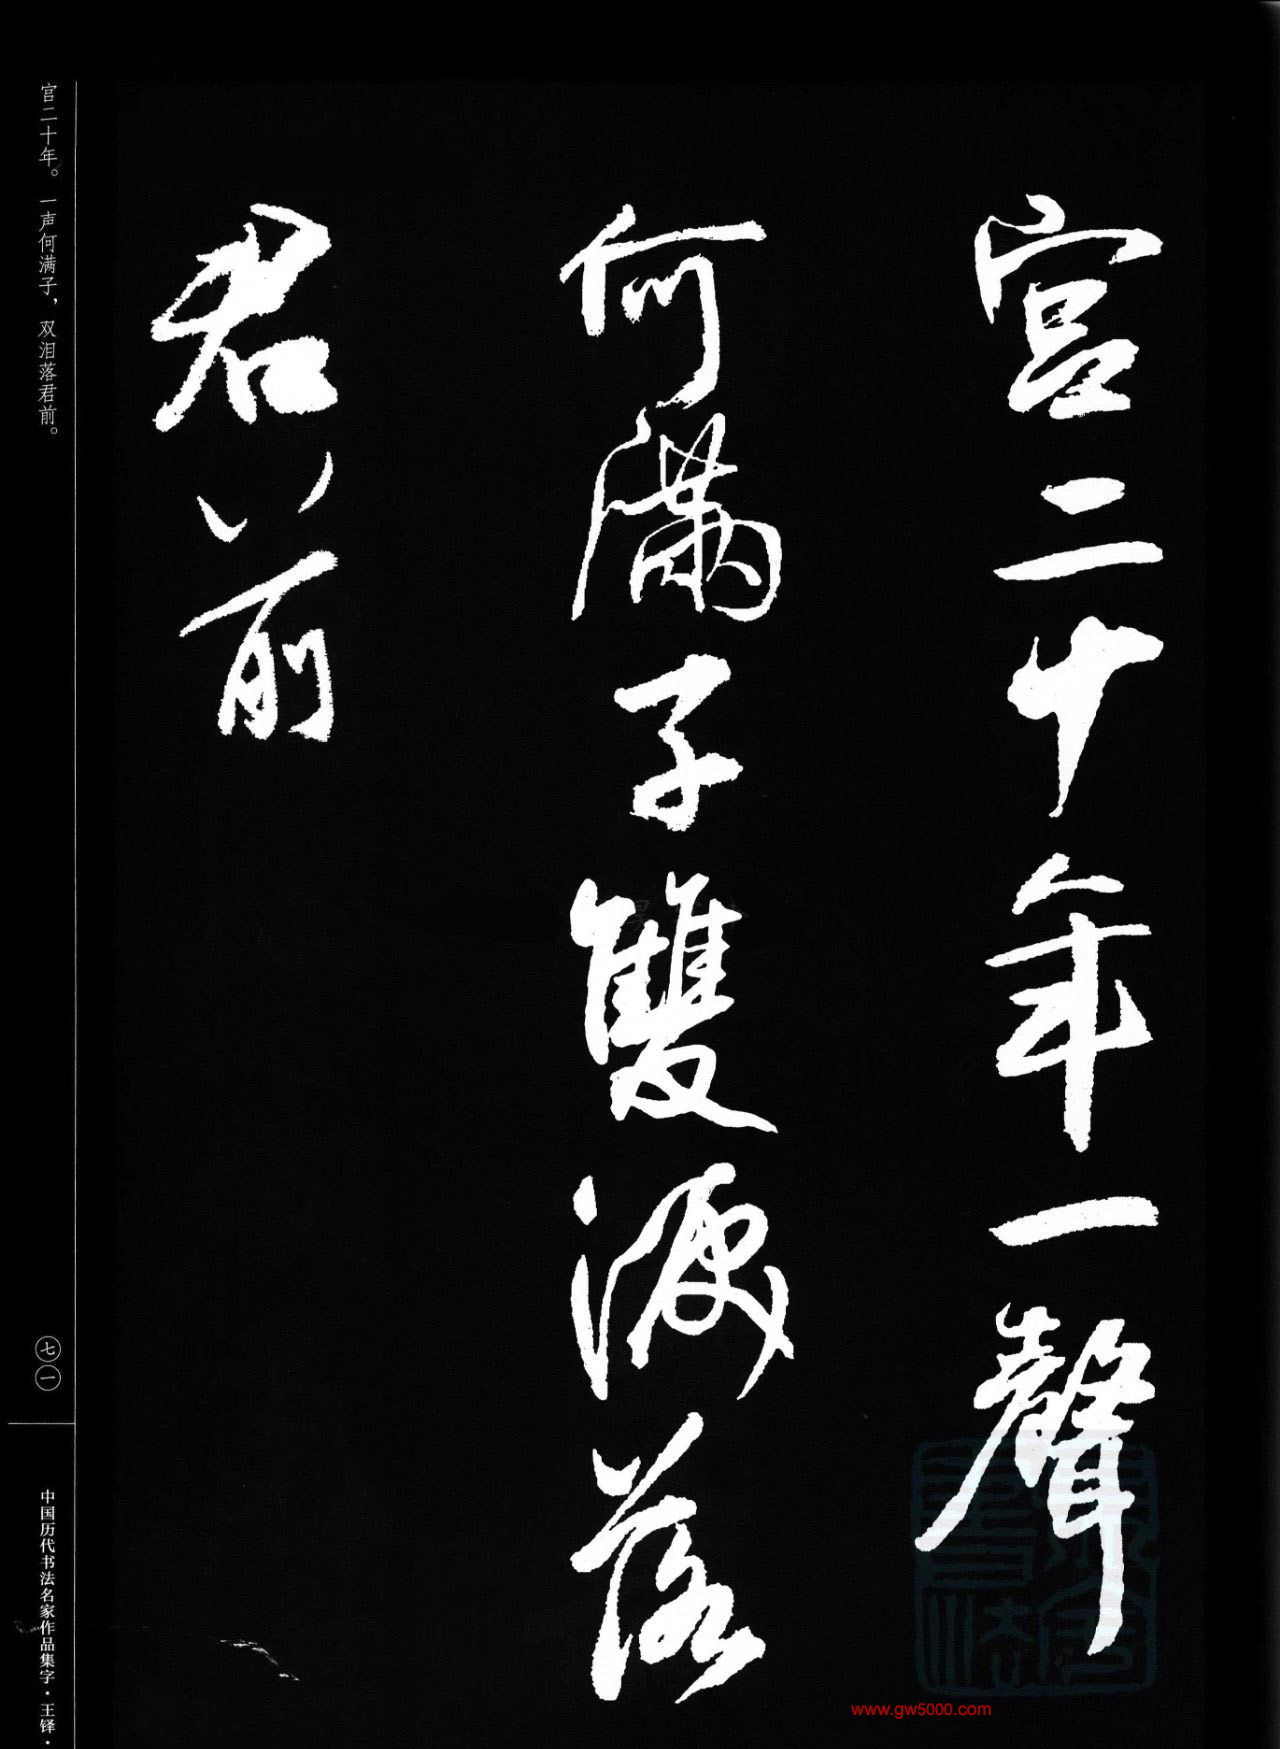 宫二十年一聲
何滿子雙淚落
君前
宫二十年。一声何满子，双泪落君前。
七一
中国历代书法名家作品集字·王铎·
www.gw5000.com